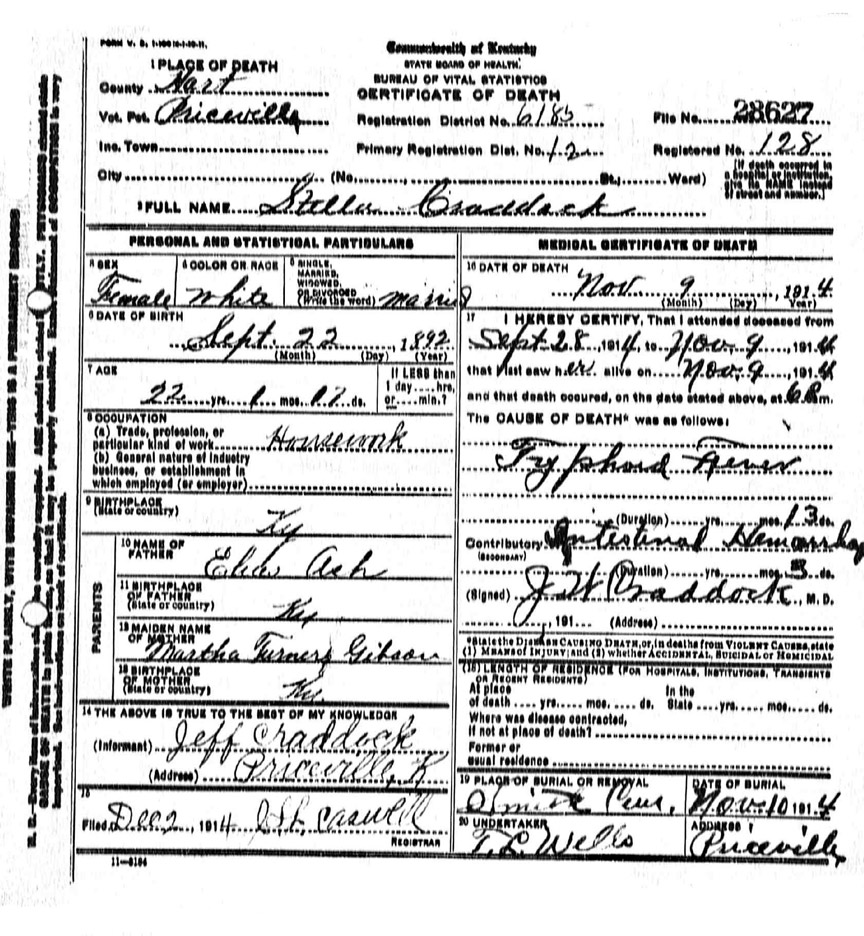 FORM V. S. 1-100M-1-10-11.
Commonwealth of Kentucky
STATE BOARD OF HEALTH.
BUREAU OF VITAL STATISTICS
CERTIFICATE OF DEATH
1 PLACE OF DEATH
County Hart
Vot. Pct. Priceville
Inc. Town
City (No. St.; Ward)
Registration District No. 6185
Primary Registration Dist. No. 12
File No. 28627
Registered No. 128
[If death occurred in a hospital or institution, give its NAME instead of street and number.]
2 FULL NAME Stella Craddock
PERSONAL AND STATISTICAL PARTICULARS
3 SEX Female
4 COLOR OR RACE White
5 SINGLE, MARRIED, WIDOWED, OR DIVORCED (Write the word) Married
6 DATE OF BIRTH
Sept. 22, 1892
(Month) (Day) (Year)
7 AGE
22 yrs. 1 mos. 17 ds.
If LESS than 1 day....hrs, or....min.?
8 OCCUPATION
(a) Trade, profession, or particular kind of work Housework
(b) General nature of industry business, or establishment in which employed (or employer)
9 BIRTHPLACE
(State or country) Ky
PARENTS
10 NAME OF FATHER Ash
11 BIRTHPLACE OF FATHER (State or country) Ky
12 MAIDEN NAME OF MOTHER Martha Gibson
13 BIRTHPLACE OF MOTHER (State or country) Ky
14 THE ABOVE IS TRUE TO THE BEST OF MY KNOWLEDGE
(Informant) Jeff Craddock
(Address) Priceville, K
15
Filed Dec 2, 1914 Caswell
REGISTRAR
11-8184
MEDICAL CERTIFICATE OF DEATH
16 DATE OF DEATH
Nov 9, 1914
(Month) (Day) (Year)
17 I HEREBY CERTIFY, That I attended deceased from
Sept 28, 1914, to Nov. 9, 1914
that I last saw her alive on Nov. 9, 1914
and that death occured, on the date stated above, at 6 m.
The CAUSE OF DEATH* was as follows:
Typhoid Fever
(Duration) yrs. mos. 13 ds.
Contributory Intestinal Hemorrhag
(SECONDARY)
(Duration) yrs. mos. 3 ds.
(Signed) J W Craddock, M. D.
, 191 (Address)
*State the DISEASE CAUSING DEATH, or, in deaths from VIOLENT CAUSES, state
(1) MEANS of INJURY; and (2) whether ACCIDENTAL, SUICIDAL or HOMICIDAL
(18) LENGTH OF RESIDENCE (FOR HOSPITALS, INSTITUTIONS, TRANSIENTS OR RECENT RESIDENTS)
At place of death yrs. mos. ds. In the State yrs. mos. ds.
Where was disease contracted, if not at place of death?
Former or usual residence
19 PLACE OF BURIAL OR REMOVAL
DATE OF BURIAL
Nov. 10 1914
20 UNDERTAKER
T. L. Wells
ADDRESS
Priceville